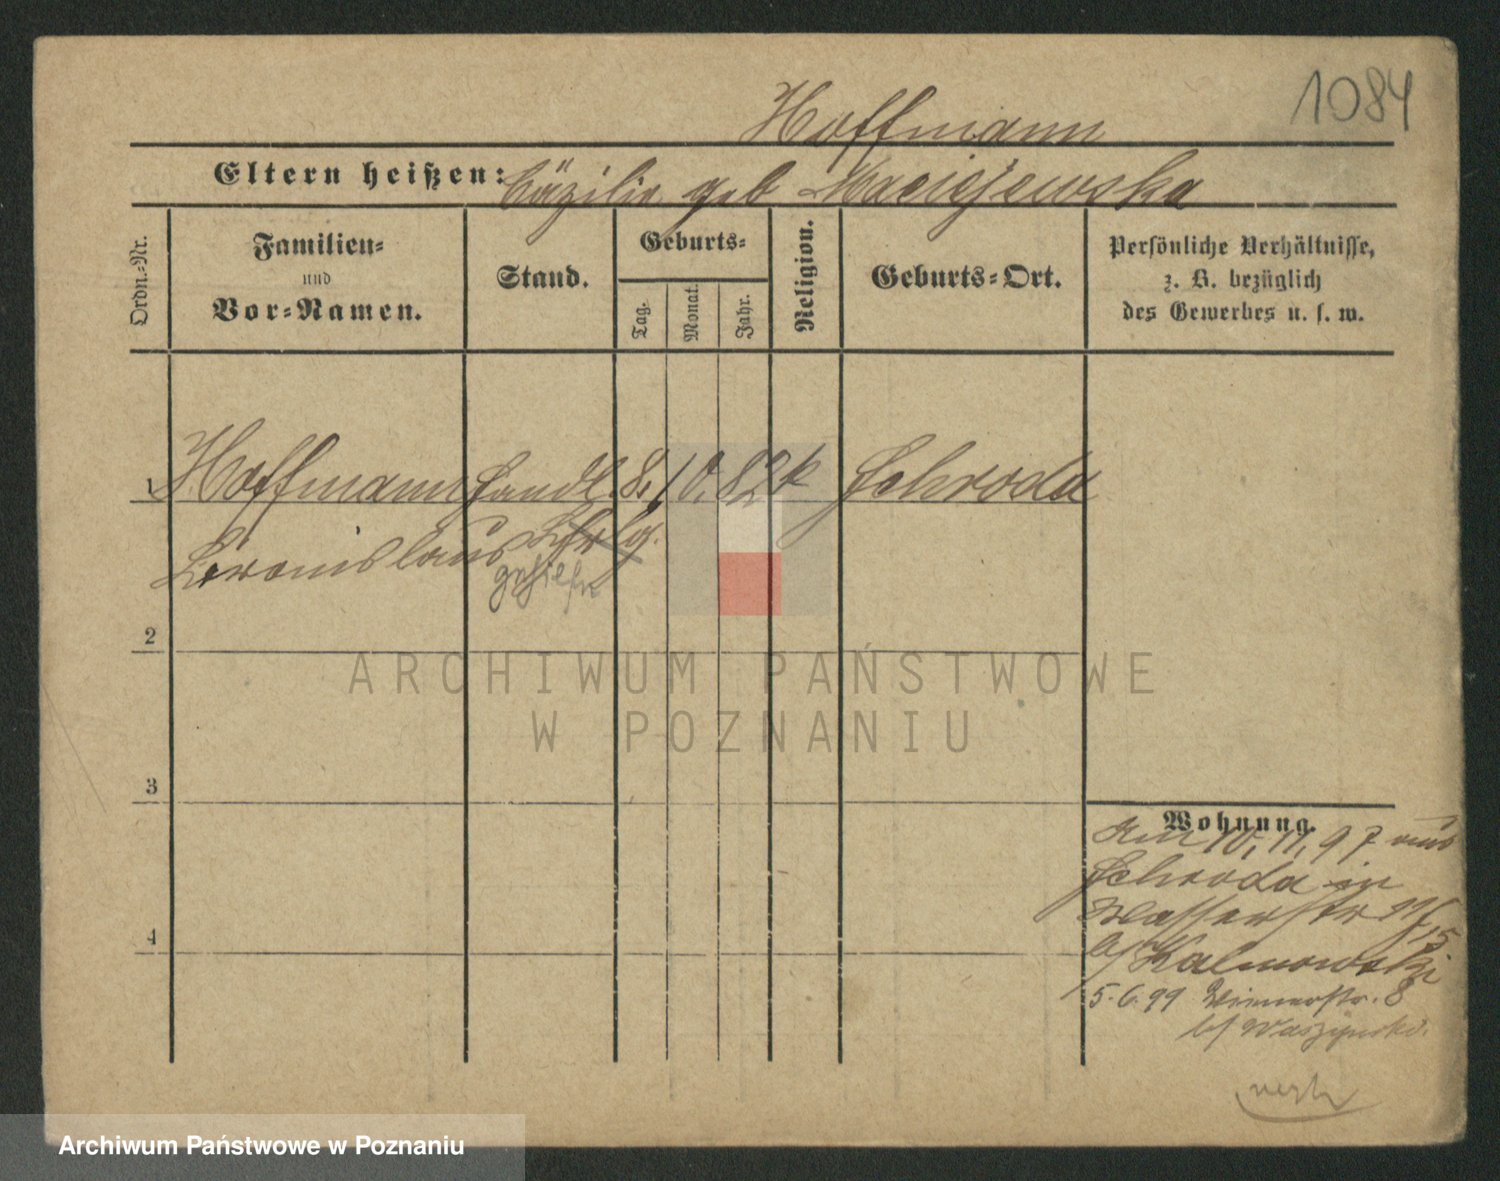 1084
Hoffmann
Eltern heißen: Cäzilie geb Maciejewska
Ordn.-Nr.
Familien-
und
Vor-Namen.
Stand.
Geburts-
Tag.
Monat.
Jahr.
Religion.
Geburts-Ort.
Persönliche Verhältnisse,
z. B. bezüglich
des Gewerbes u. s. w.
1 Hoffmann Handl. 8. 10. 82 k Schroda
Bronislaus Lehrlg.
gehilfe
2
ARCHIWUM PAŃSTWOWE
W POZNANIU
3
Wohnung.
Am 10. 11. 97 aus
Schroda in
Wasserstr
4
b/ Kalmowski
5. 6. 99 Wienerstr. 8
b/ Waszynski.
Archiwum Państwowe w Poznaniu